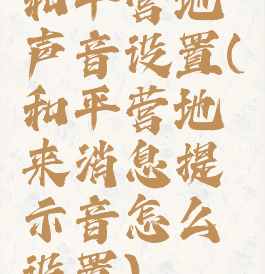 和平营地
声音设置(
和平营地
来消息提
示音怎么
设置)